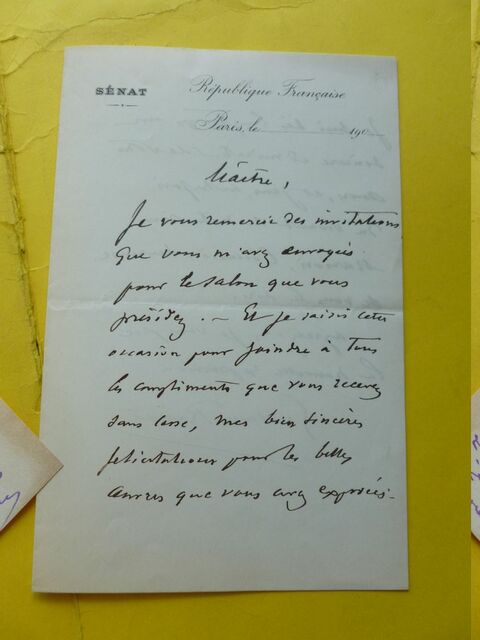 SÉNAT
République Française
Paris, le 190
Maître,
Je vous remercie des invitations
que vous m'avez envoyées
pour le salon que vous
présidez. — Et je saisis cette
occasion pour joindre à tous
les compliments que vous recevez
sans cesse, mes bien sincères
félicitations pour les belles
œuvres que vous avez exposées.